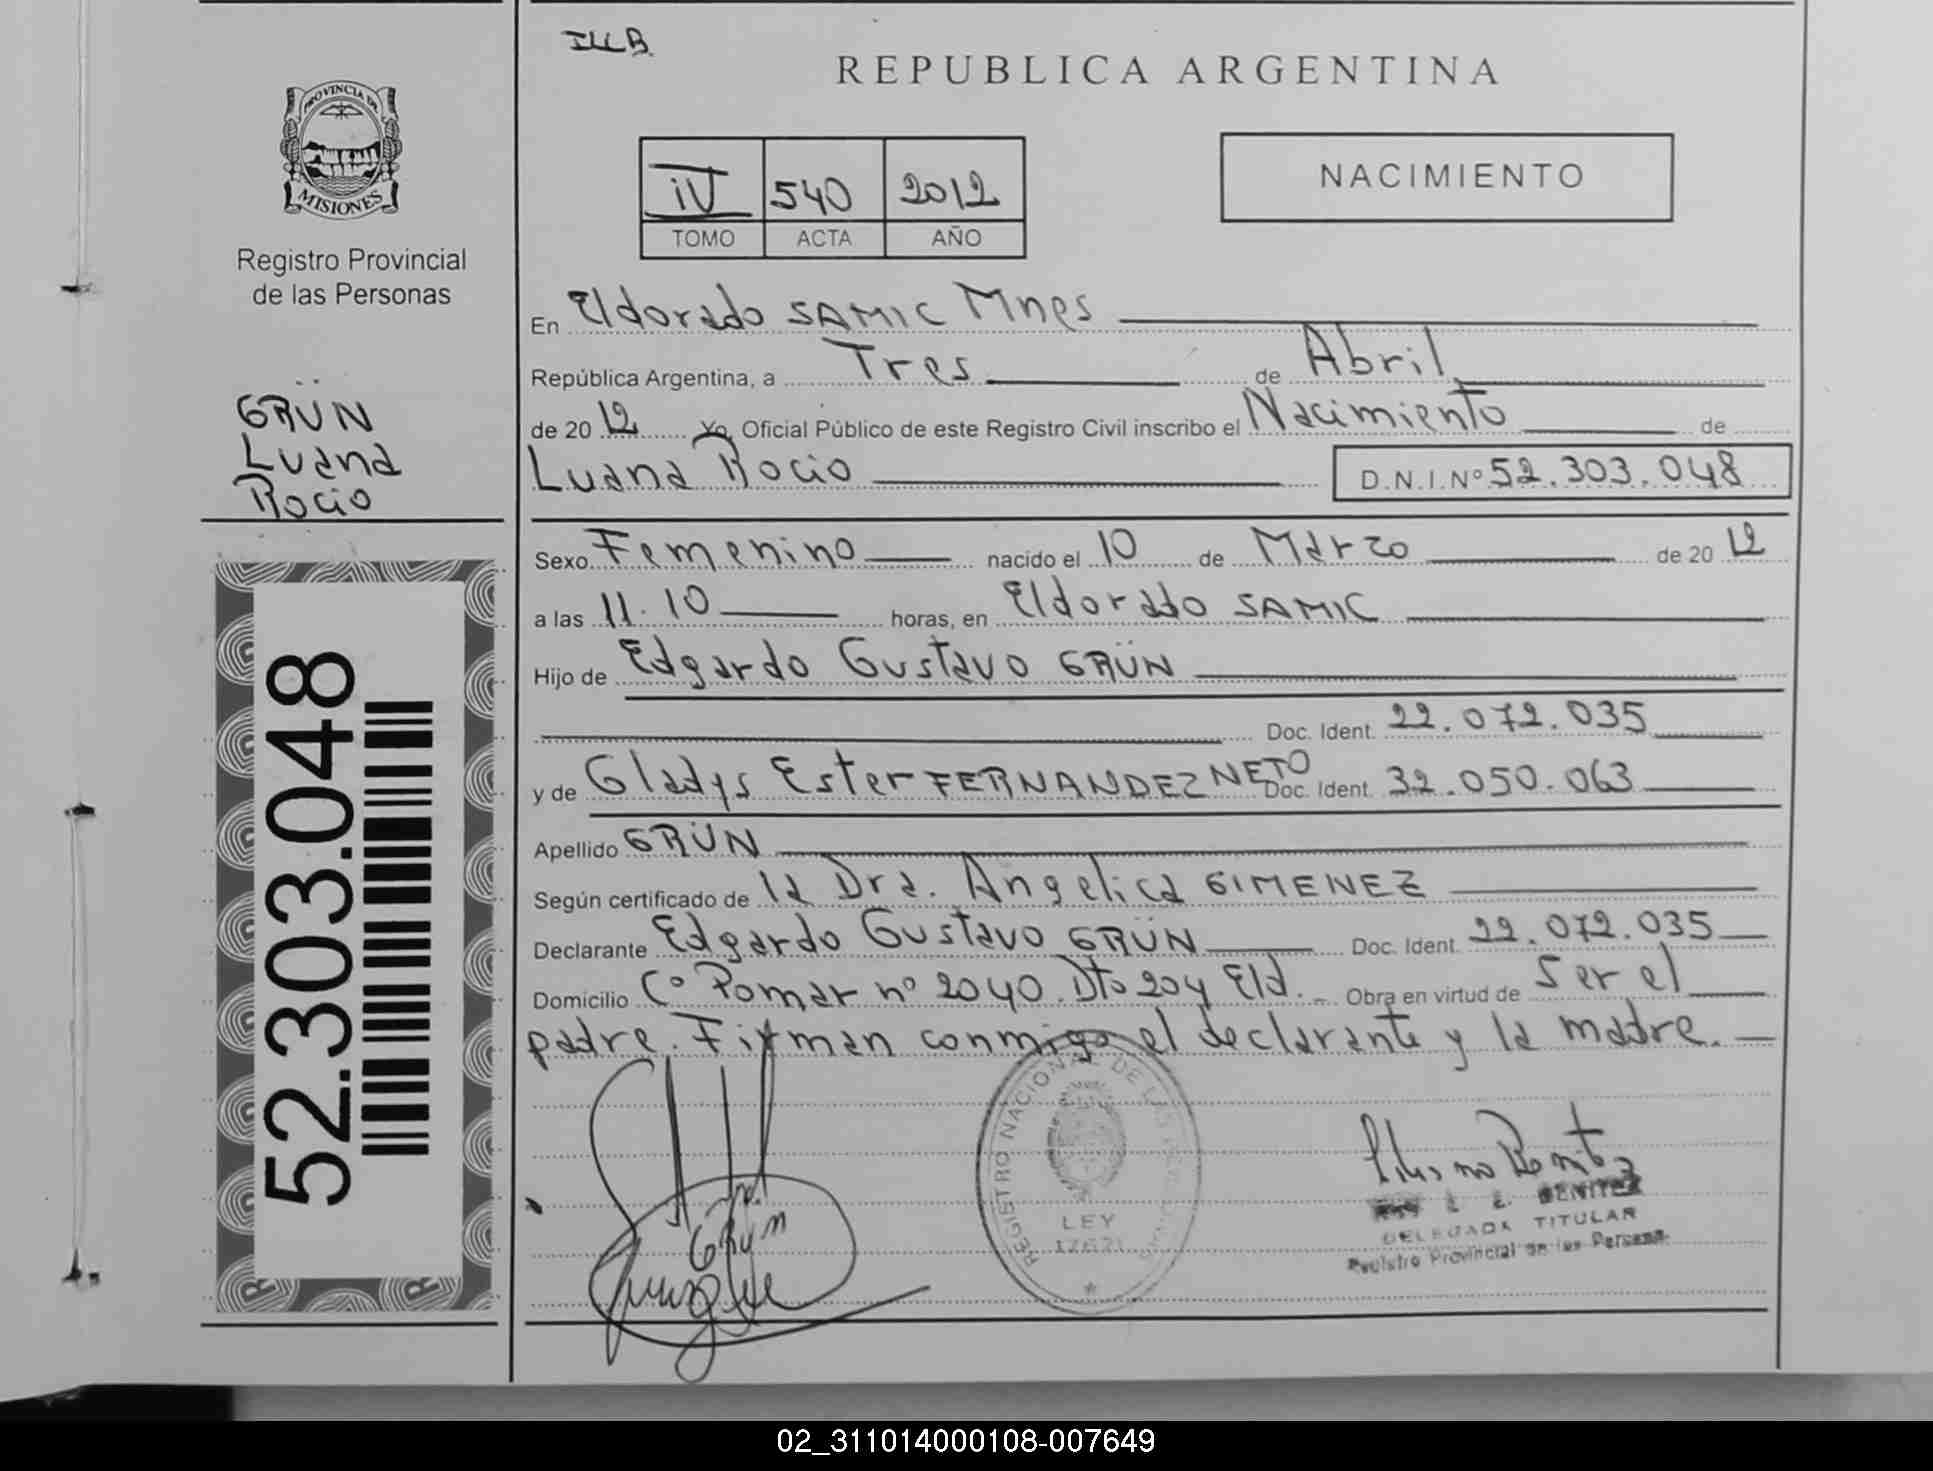 ILLB.
REPUBLICA ARGENTINA
PROVINCIA DE
MISIONES
Registro Provincial
de las Personas
IV 540 2012
TOMO ACTA AÑO
NACIMIENTO
GRÜN
Luana
Rocio
52.303.048
En Eldorado SAMIC Mnes
República Argentina, a Tres de Abril
de 2012 Yo, Oficial Público de este Registro Civil inscribo el Nacimiento de
Luana Rocio D.N.I.Nº 52.303.048
Sexo Femenino nacido el 10 de Marzo de 2012
a las 11.10 horas, en Eldorado SAMIC
Hijo de Edgardo Gustavo GRÜN
Doc. Ident. 22.072.035
y de Gladys Ester FERNANDEZ NETO Doc. Ident. 32.050.063
Apellido GRÜN
Según certificado de la Dra. Angelica GIMENEZ
Declarante Edgardo Gustavo GRÜN Doc. Ident. 22.072.035
Domicilio Cº Pomar nº 2040. Dto 204 Eld. Obra en virtud de Ser el
padre. Firman conmigo el declarante y la madre.
REGISTRO NACIONAL DE LAS PERSONAS
LEY
17671
Grün
BENITEZ
DELEGADA TITULAR
Registro Provincial de las Personas
02_311014000108-007649